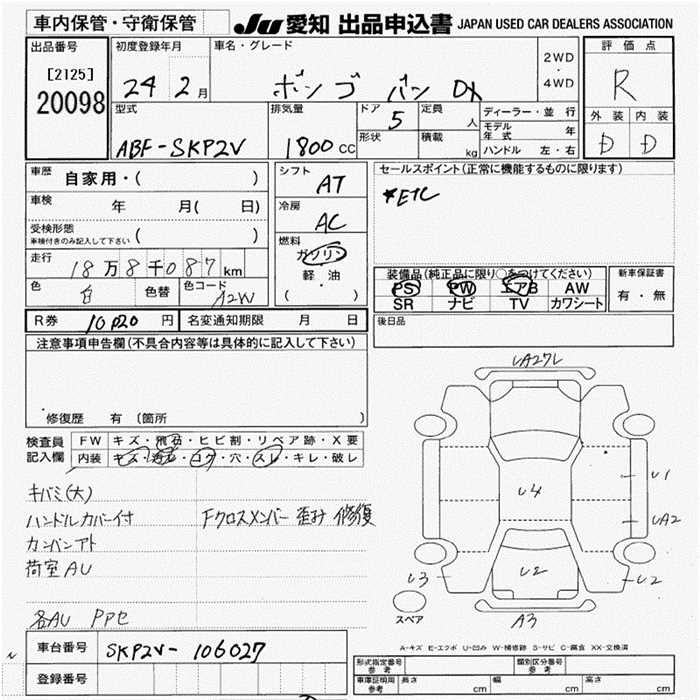 車内保管・守衛保管
JU 愛知 出品申込書 JAPAN USED CAR DEALERS ASSOCIATION
出品番号
[2125]
20098
初度登録年月
24 2月
車名・グレード
ボンゴ バン DX
2WD
・
4WD
評価点
R
外装 内装
D D
型式
ABF-SKP2V
排気量
1800 CC
ドア
5
形状
定員
人
積載
kg
ディーラー・並行
モデル年式 年
ハンドル 左・右
車歴 自家用・( )
車検 年 月( 日)
受検形態
車検付きのみ記入して下さい ( )
走行 18万8千087km
色 白 色替 色コード A2W
R券 10020 円 名変通知期限 月 日
シフト
AT
冷房
AC
燃料
ガソリン
軽・油
( )
セールスポイント(正常に機能するものに限ります)
*ETC
装備品(純正品に限り○をつけてください)
PS PW エアB AW
SR ナビ TV カワシート
新車保証書
有・無
後日品
注意事項申告欄(不具合内容等は具体的に記入して下さい)
修復歴 有 〔箇所 〕
検査員
記入欄
FW キズ・飛石・ヒビ割・リペア跡・X要
内装 キズ・汚レ・コゲ・穴・スレ・キレ・破レ
キバミ(大)
ハンドルカバー付
Fクロスメンバー 歪み 修復
カンバンアト
荷室AU
各AU PPセ
車台番号 SKP2V-106027
登録番号
UA27L
U4
U1
UA2
U3
U2
U2
A3
スペア
A-キズ E-エクボ U-凹み W-補修跡 S-サビ C-腐食 XX-交換済
形式指定番号
参考
類別区分番号
参考
車庫証明用
参考
長さ cm 幅 cm 高さ cm